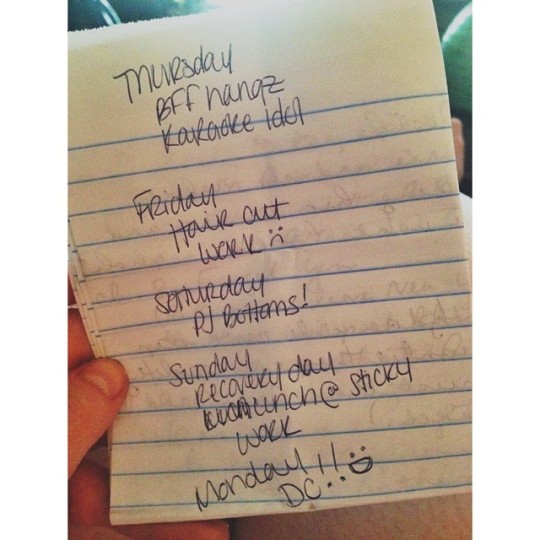 Thursday
BFF hangz
Karaoke Idol
Friday
Hair cut
Work :(
Saturday
PJ Bottoms!
Sunday
Recovery day
lunch @ Sticky
Work
Monday!! :D
DC!!